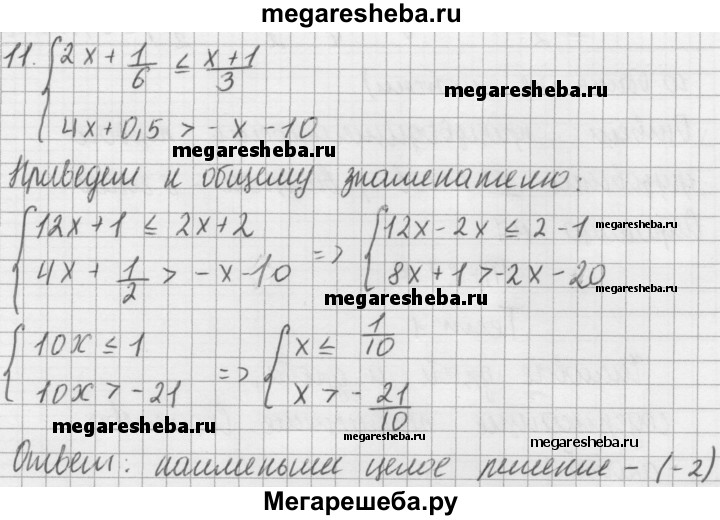 megaresheba.ru
11. { 2x + 1/6 ≤ (x+1)/3
megaresheba.ru
4x+0,5 > -x-10
megaresheba.ru
Приведем к общему знаменателю:
{ 12x+1 ≤ 2x+2 => { 12x-2x ≤ 2-1
megaresheba.ru
4x + 1/2 > -x-10 8x+1>-2x-20
megaresheba.ru
{ 10x ≤ 1 => { x ≤ 1/10
10x > -21 x > -21/10
megaresheba.ru
megaresheba.ru
megaresheba.ru
Ответ: наименьшее целое решение - (-2)
Мегарешеба.ру